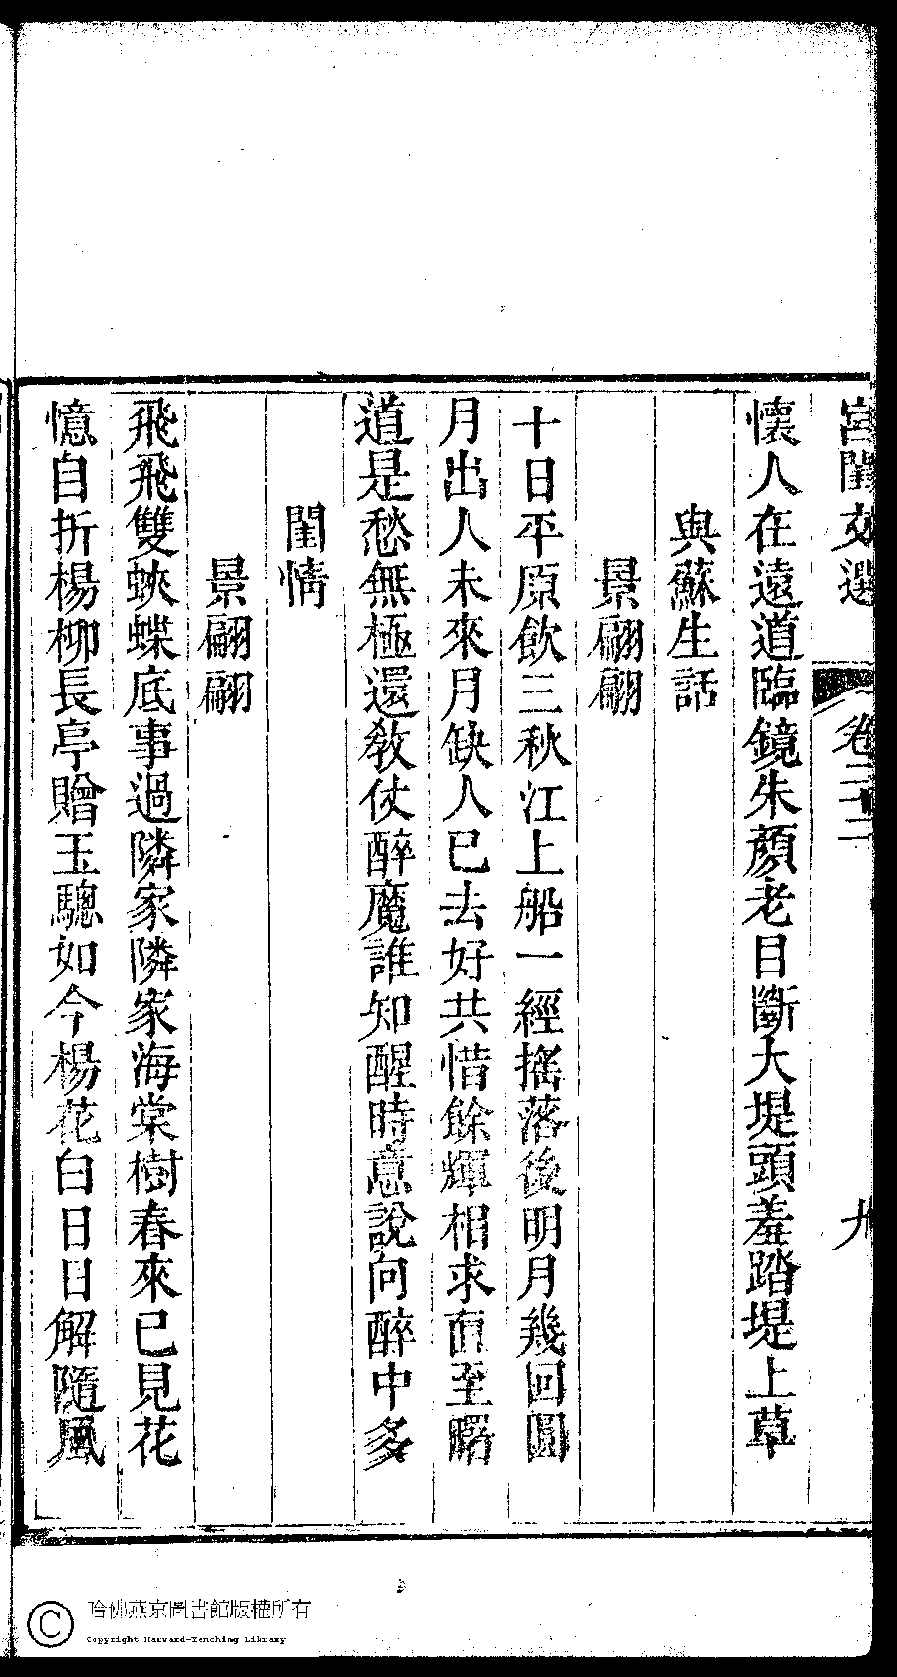 宮閨文選 卷二十二
懷人在遠道臨鏡朱顏老目斷大堤頭羞踏堤上草
與蘇生話
景翩翩
十日平原飲三秋江上船一經搖落後明月幾回圓
月出人未來月缺人已去好共惜餘輝相求直至曙
道是愁無極還敎仗醉魔誰知醒時意說向醉中多
閨情
景翩翩
飛飛雙蛺蝶底事過隣家隣家海棠樹春來已見花
憶自折楊柳長亭贈玉驄如今楊花白日日解隨風
哈佛燕京圖書館版權所有
Copyright Harvard-Yenching Library